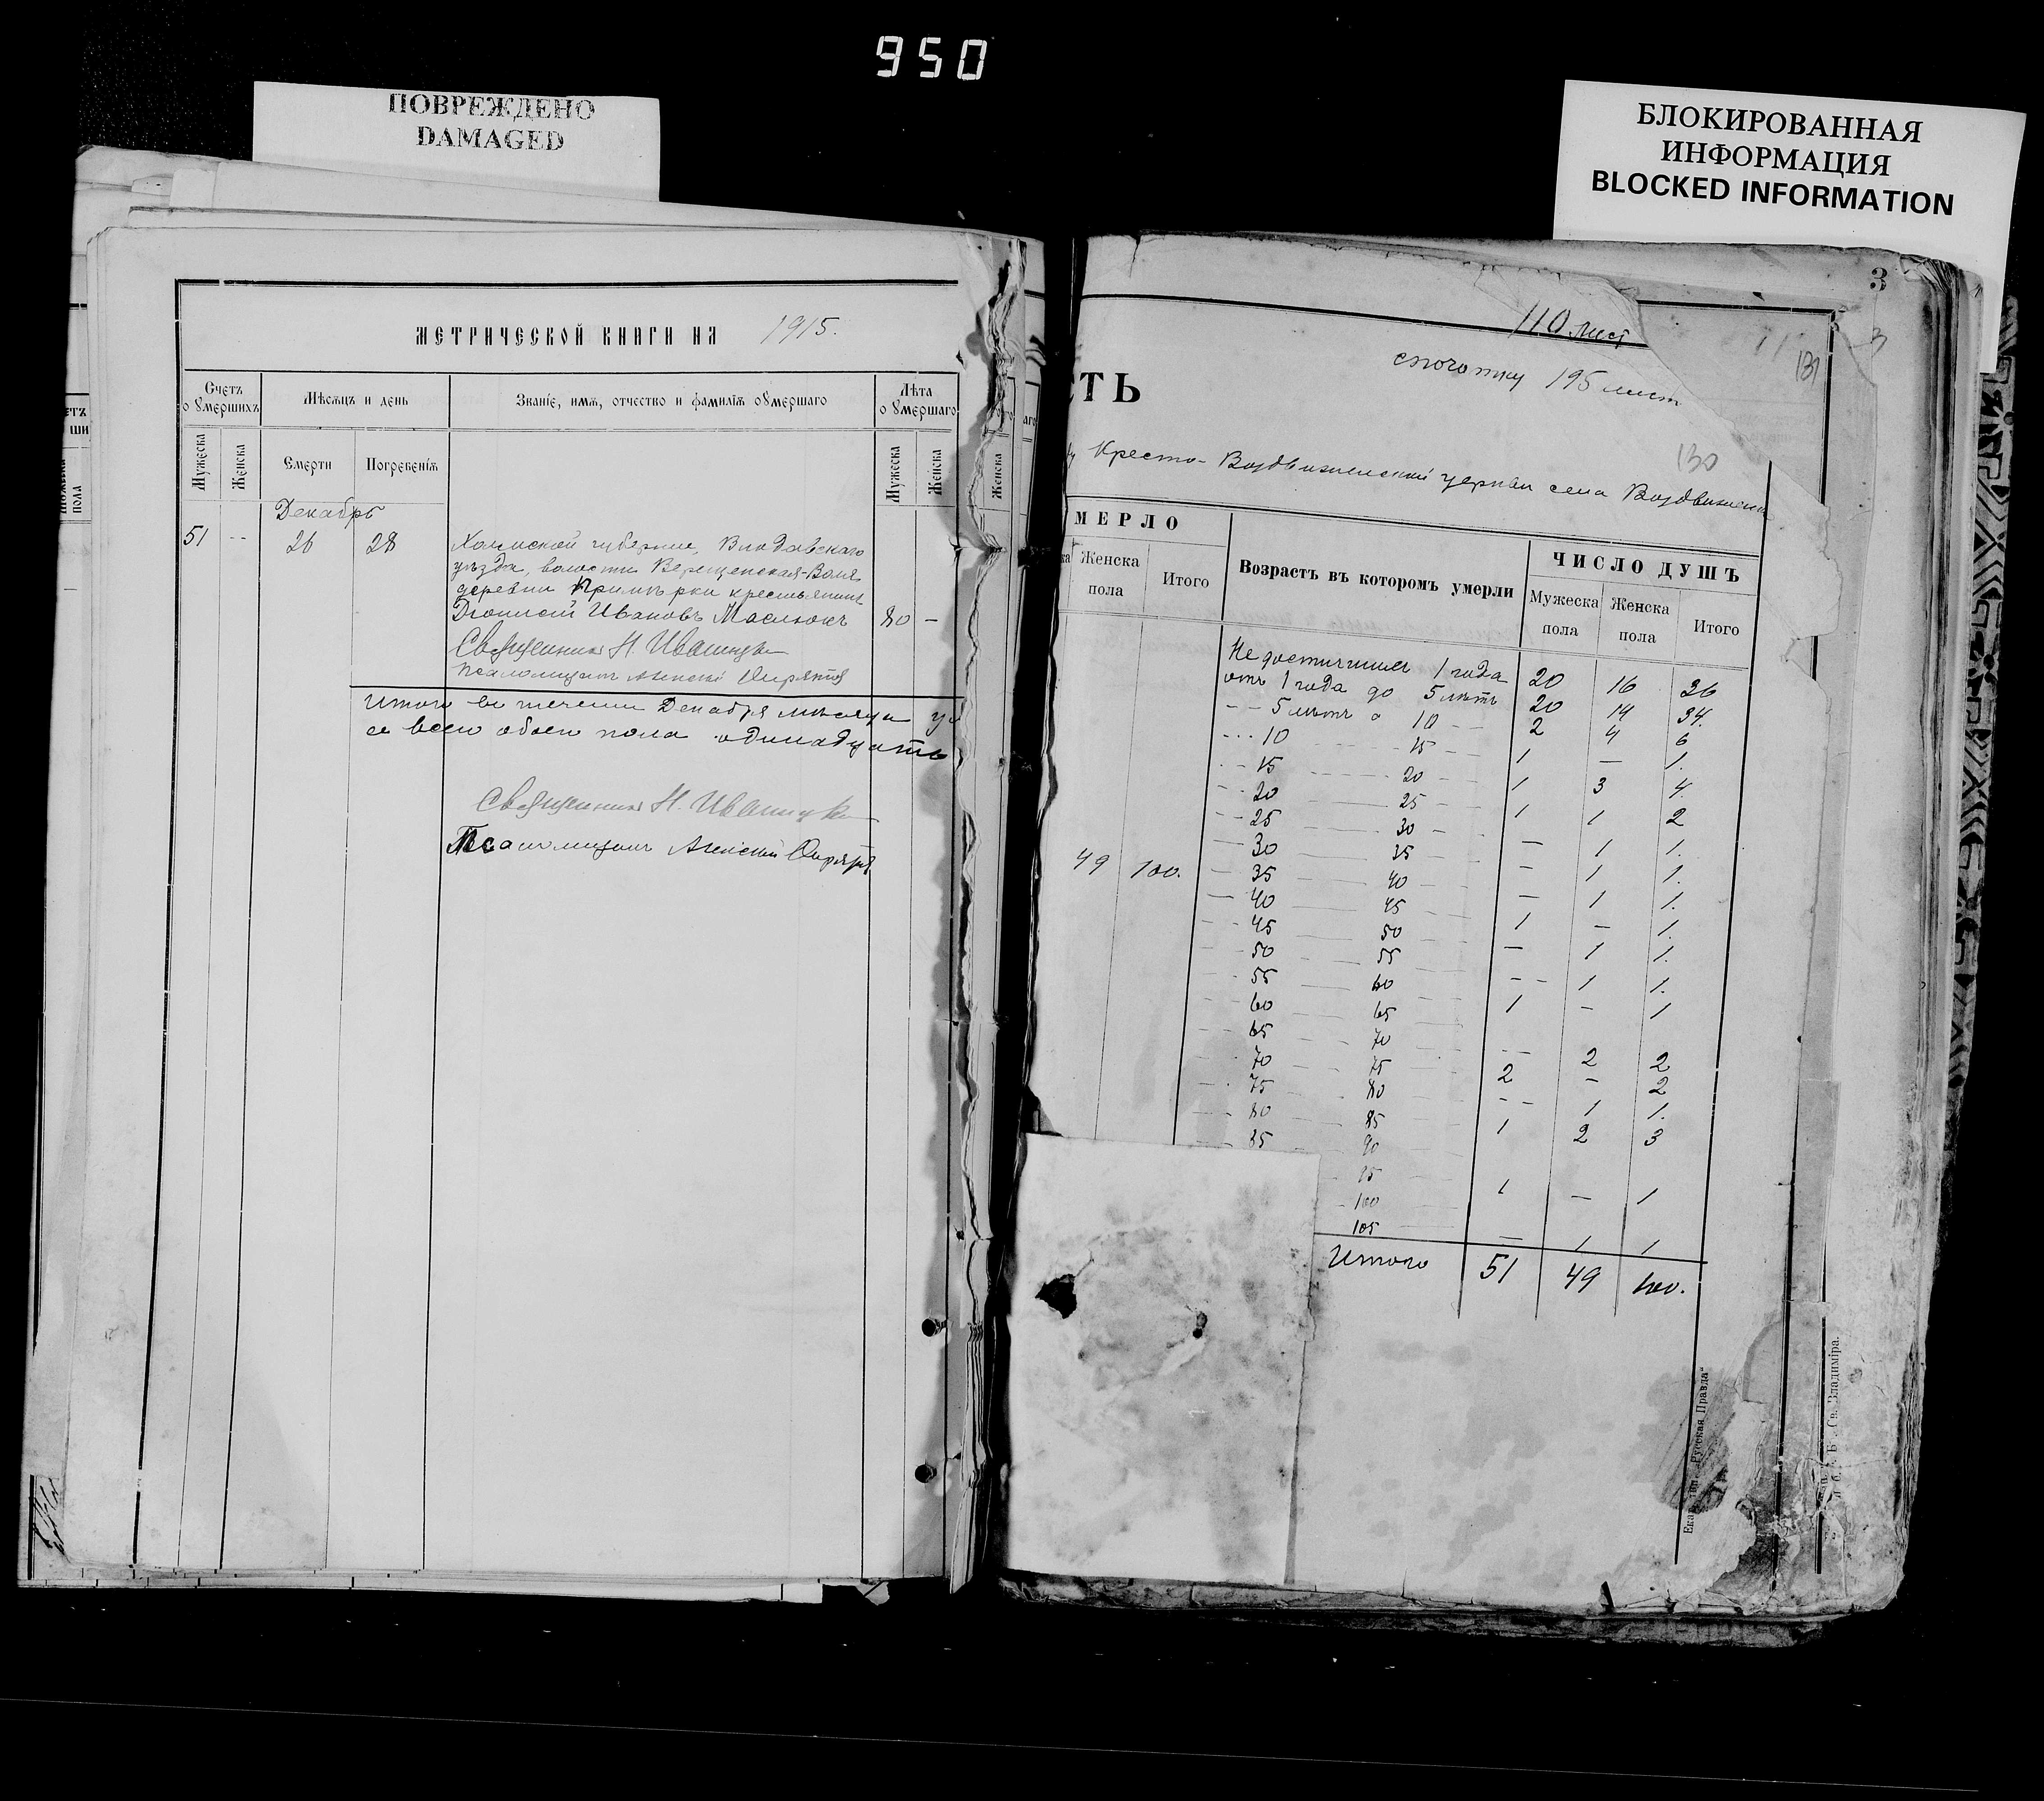 950
ПОВРЕЖДЕНО
DAMAGED
БЛОКИРОВАННАЯ
ИНФОРМАЦИЯ
BLOCKED INFORMATION
МЕТРИЧЕСКОЙ КНИГИ НА 1915.
Счетъ оумершихъ
Мѣсяцъ и день
Званіе, имя, отчество и фамилія оумершаго
Лѣта оумершаго
Мужеска
Женска
Смерти
Погребенія
Мужеска
Женска
Декабрь
51 -- 26 28 Холмской губернии, Влодавскаго
уѣзда, волости Верещенская-Воля
деревни крестьянинъ
Ивановъ 80 –
Священникъ Н.
Псаломщикъ
Итого въ течении Декабря мѣсяца
а всего обоего пола одинадцать
Священникъ Н.
Псаломщикъ
3
110 лист
195 лист
131
130
СТЬ
Кресто-Воздвиженской церкви села
МЕРЛО
Женска пола
Итого
Возрастъ въ которомъ умерли
ЧИСЛО ДУШЪ
Мужеска пола
Женска пола
Итого
49 100.
Не достигшихъ 1 года 20 16 36
отъ 1 года до 5 лѣтъ 20 14 34.
-- 5 лѣтъ " 10 -- 2 4 6
--- 10 15 -- 1 — 1.
-- 15 20 -- 1 3 4.
-- 20 25 -- 1 1 2
-- 25 30 -- — 1 1.
— 30 35 — 1 1.
— 35 40 — 1 1.
— 40 45 1 - 1.
-- 45 50 — 1 1.
-- 50 55 -- 1 1.
-- 55 60 1 - 1
-- 60 65
-- 65 70 -- 2 2
-- 70 75 2 - 2
-- 75 80 -- 1 1.
-- 80 85 1 2 3
-- 85 90
95 1 — 1
100
105 — 1 1
Итого 51 49 100.
„Русская Правда“
Св. Владиміра.